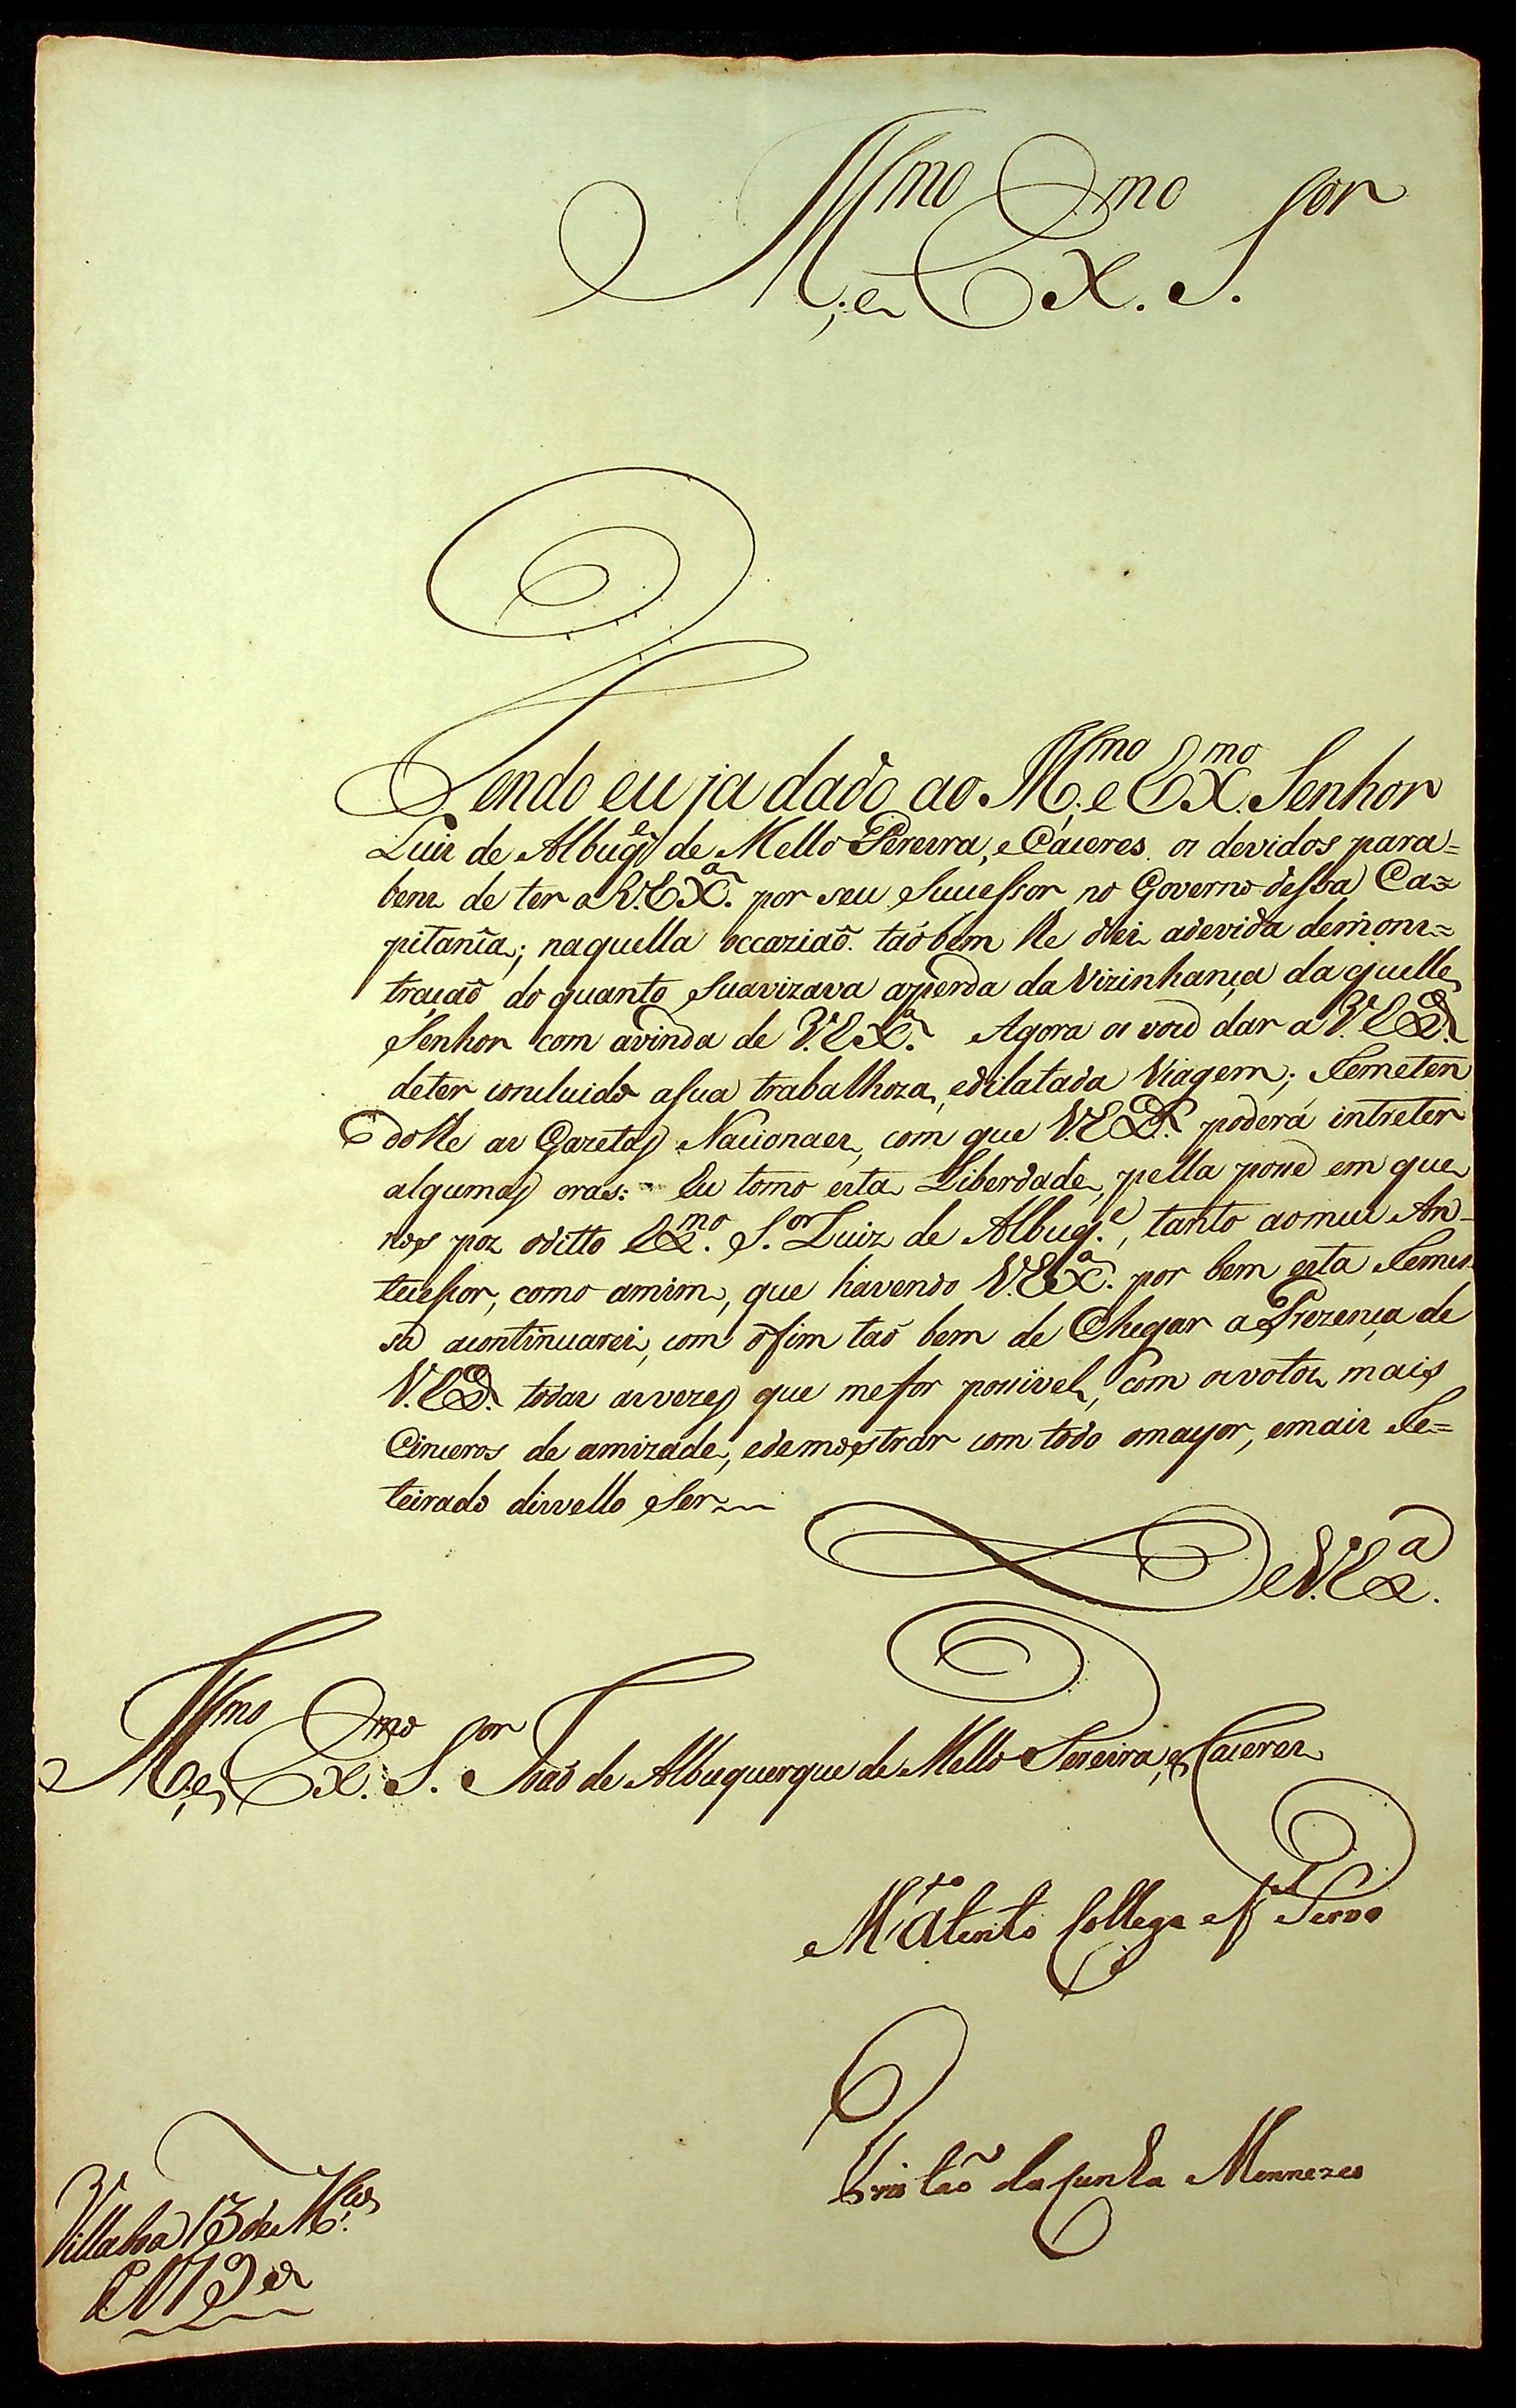 Ill.mo e Ex.mo S.or
Tendo eu ja dado ao Ill.mo e Ex.mo Senhor
Luiz de Albuq.e de Mello Pereira, e Cáceres os devidos para=
bens de ter a V. Ex.a por seu Sucessor no Governo dessa Ca=
pitania; naquella occaziaõ taõbem lhe dei adevida demons=
traçaõ do quanto suavizava aperda da Vizinhança daquelle
Senhor com avinda de V. Ex.a Agora os vou dar a V. Ex.a
deter concluido asua trabalhoza, edilatada Viagem; Remeten
dolhe as Gazetas Nacionaes, com que V. Ex.a poderá intreter
algumas oras: Eu tomo esta Liberdade, pella posse em que
nos poz oditto Ex.mo S.or Luiz de Albuq.e, tanto aomeu An-
tecessor, como amim, que havendo V. Ex.a por bem esta Remes
sa acontinuarei, com ofim taõ bem de Chegar a Prezença de
V. Ex.a todas asvezes que mefor possivel, com osvotos mais
Cinceros de amizade, edemostrar com todo omayor, emais Re=
teirado disvello ser
De V. Ex.a
Ill.mo e Ex.mo S.or Joaõ de Albuquerque de Mello Pereira, e Caceres
M.to Atento Collega e Servo
Tristaõ da Cunha Mennezes
Villaboa 13 de M.ço